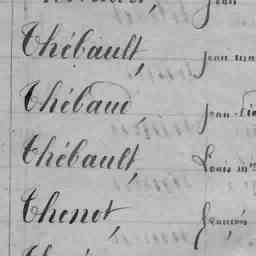 Thébault, Jean ma
Thébaud, Jean-Pie
Thébault, Louis m
Thenot, François